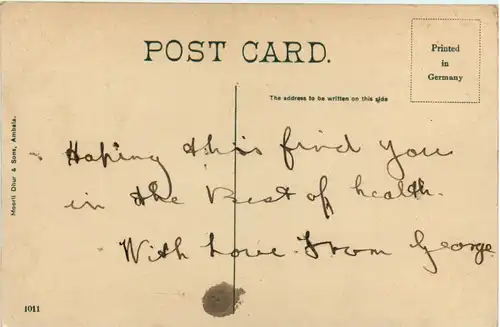 POST CARD.
Printed
in
Germany
The address to be written on this side
Moorli Dhur & Sons, Ambala.
Hoping this find you
in the Best of health.
With Love From George
1011